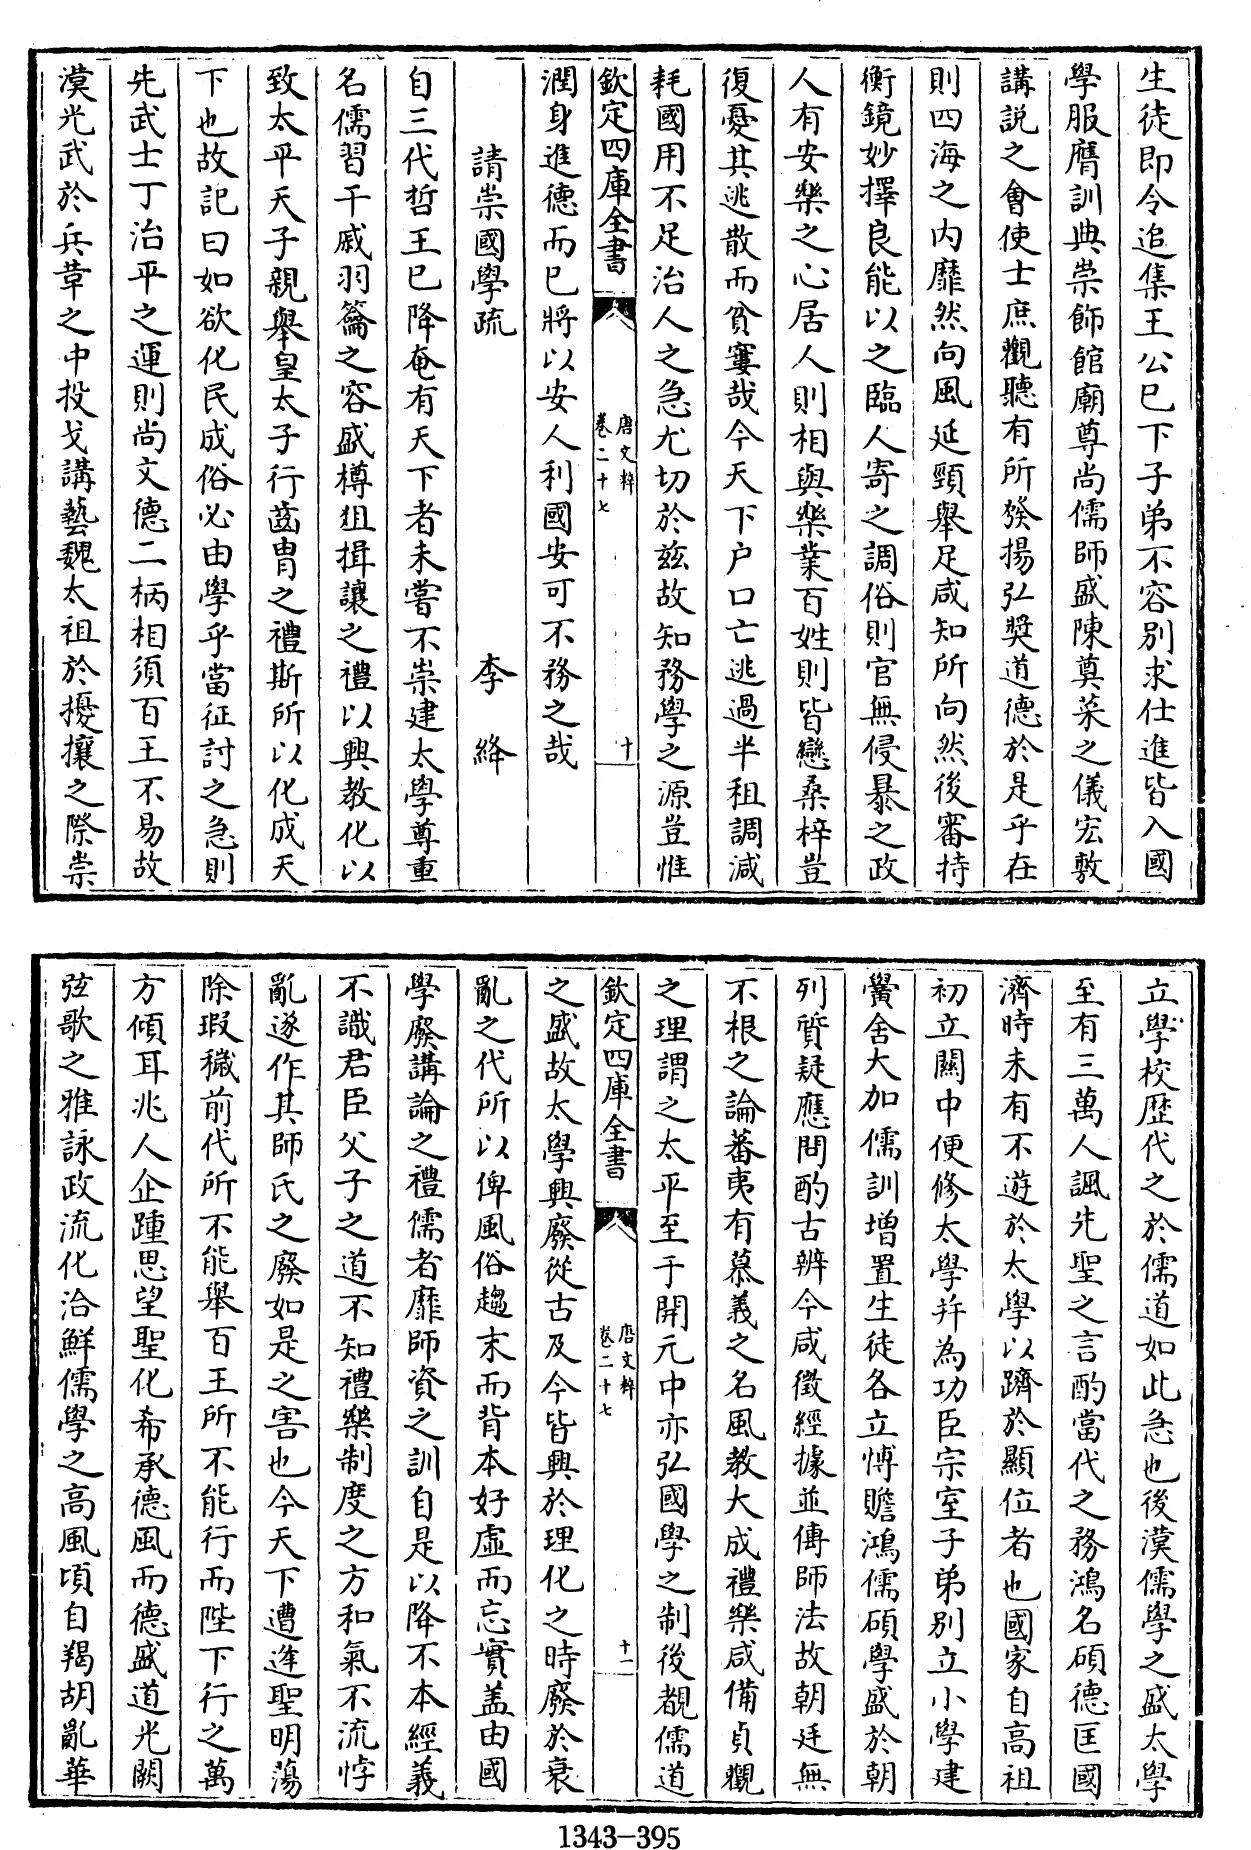 生徒即令追集王公已下子弟不容別求仕進皆入國
學服膺訓典崇飾館廟尊尚儒師盛陳奠菜之儀宏敷
講説之會使士庶觀聽有所發揚弘奬道德於是乎在
則四海之内靡然向風延頸舉足咸知所向然後審持
衡鏡妙擇良能以之臨人寄之調俗則官無侵暴之政
人有安樂之心居人則相與樂業百姓則皆戀桑梓豈
復憂其逃散而貧寠哉今天下户口亡逃過半租調減
耗國用不足治人之急尤切於兹故知務學之源豈惟
欽定四庫全書
唐文粹
卷二十七
十
潤身進德而已將以安人利國安可不務之哉
請崇國學疏 李絳
自三代哲王已降奄有天下者未嘗不崇建太學尊重
名儒習干戚羽籥之容盛樽俎揖讓之禮以興教化以
致太平天子親舉皇太子行齒胄之禮斯所以化成天
下也故記曰如欲化民成俗必由學乎當征討之急則
先武士丁治平之運則尚文德二柄相須百王不易故
漢光武於兵革之中投戈講藝魏太祖於擾攘之際崇
立學校歴代之於儒道如此急也後漢儒學之盛太學
至有三萬人諷先聖之言酌當代之務鴻名碩德匡國
濟時未有不遊於太學以躋於顯位者也國家自高祖
初立關中便修太學幷為功臣宗室子弟别立小學建
黌舍大加儒訓増置生徒各立博贍鴻儒碩學盛於朝
列質疑應問酌古辨今咸徵經據並傳師法故朝廷無
不根之論蕃夷有慕義之名風教大成禮樂咸備貞觀
之理謂之太平至于開元中亦弘國學之制後覩儒道
欽定四庫全書
唐文粹
卷二十七
十一
之盛故太學興廢從古及今皆興於理化之時廢於衰
亂之代所以俾風俗趨末而背本好虛而忘實盖由國
學廢講論之禮儒者靡師資之訓自是以降不本經義
不識君臣父子之道不知禮樂制度之方和氣不流悖
亂遂作其師氏之廢如是之害也今天下遭迍聖明蕩
除瑕穢前代所不能舉百王所不能行而陛下行之萬
方傾耳兆人企踵思望聖化希承德風而德盛道光闕
弦歌之雅詠政流化洽鮮儒學之高風頃自羯胡亂華
1343-395